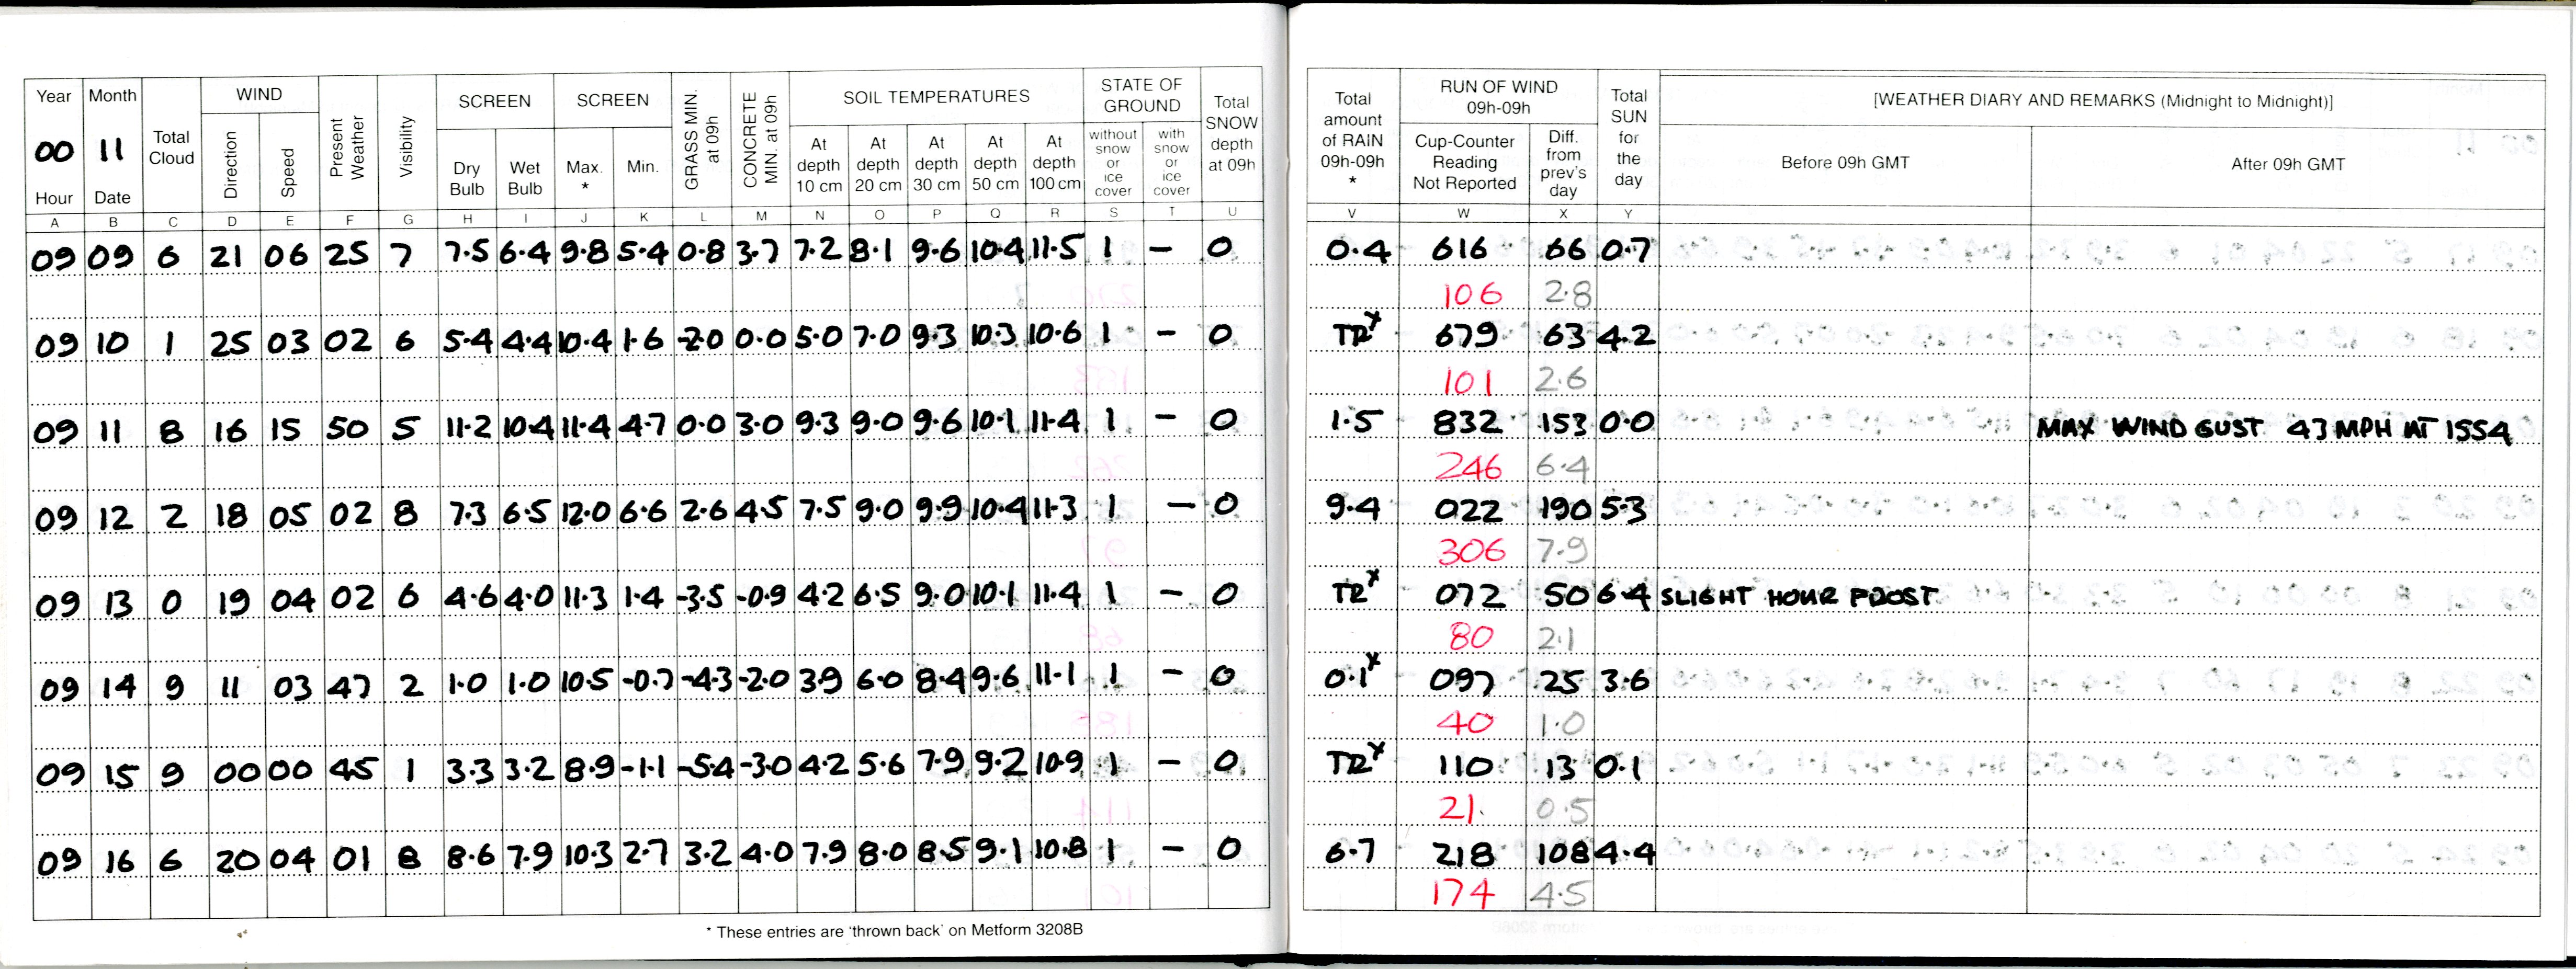 Year Month Total Cloud WIND Present Weather Visibility SCREEN SCREEN GRASS MIN. at 09h CONCRETE MIN. at 09h SOIL TEMPERATURES STATE OF GROUND Total SNOW depth at 09h Total amount of RAIN 09h-09h * RUN OF WIND 09h-09h Total SUN for the day [WEATHER DIARY AND REMARKS (Midnight to Midnight)]
00 11 Direction Speed Dry Bulb Wet Bulb Max. * Min. At depth 10 cm At depth 20 cm At depth 30 cm At depth 50 cm At depth 100 cm without snow or ice cover with snow or ice cover Cup-Counter Reading Not Reported Diff. from prev's day Before 09h GMT After 09h GMT
Hour Date
A B C D E F G H I J K L M N O P Q R S T U V W X Y
09 09 6 21 06 25 7 7.5 6.4 9.8 5.4 0.8 3.7 7.2 8.1 9.6 10.4 11.5 1 - 0 0.4 616 66 0.7
106 2.8
09 10 1 25 03 02 6 5.4 4.4 10.4 1.6 -2.0 0.0 5.0 7.0 9.3 10.3 10.6 1 - 0 TR x 679 63 4.2
101 2.6
09 11 8 16 15 50 5 11.2 10.4 11.4 4.7 0.0 3.0 9.3 9.0 9.6 10.1 11.4 1 - 0 1.5 832 153 0.0 MAX WIND GUST 43 MPH AT 1554
246 6.4
09 12 2 18 05 02 8 7.3 6.5 12.0 6.6 2.6 4.5 7.5 9.0 9.9 10.4 11.3 1 - 0 9.4 022 190 5.3
306 7.9
09 13 0 19 04 02 6 4.6 4.0 11.3 1.4 -3.5 -0.9 4.2 6.5 9.0 10.1 11.4 1 - 0 TR x 072 50 6.4 SLIGHT HOUR FROST
80 2.1
09 14 9 11 03 47 2 1.0 1.0 10.5 -0.7 -4.3 -2.0 3.9 6.0 8.4 9.6 11.1 1 - 0 0.1 x 097 25 3.6
40 1.0
09 15 9 00 00 45 1 3.3 3.2 8.9 -1.1 -5.4 -3.0 4.2 5.6 7.9 9.2 10.9 1 - 0 TR x 110 13 0.1
21. 0.5
09 16 6 20 04 01 8 8.6 7.9 10.3 2.7 3.2 4.0 7.9 8.0 8.5 9.1 10.8 1 - 0 6.7 218 108 4.4
174 4.5
* These entries are 'thrown back' on Metform 3208B